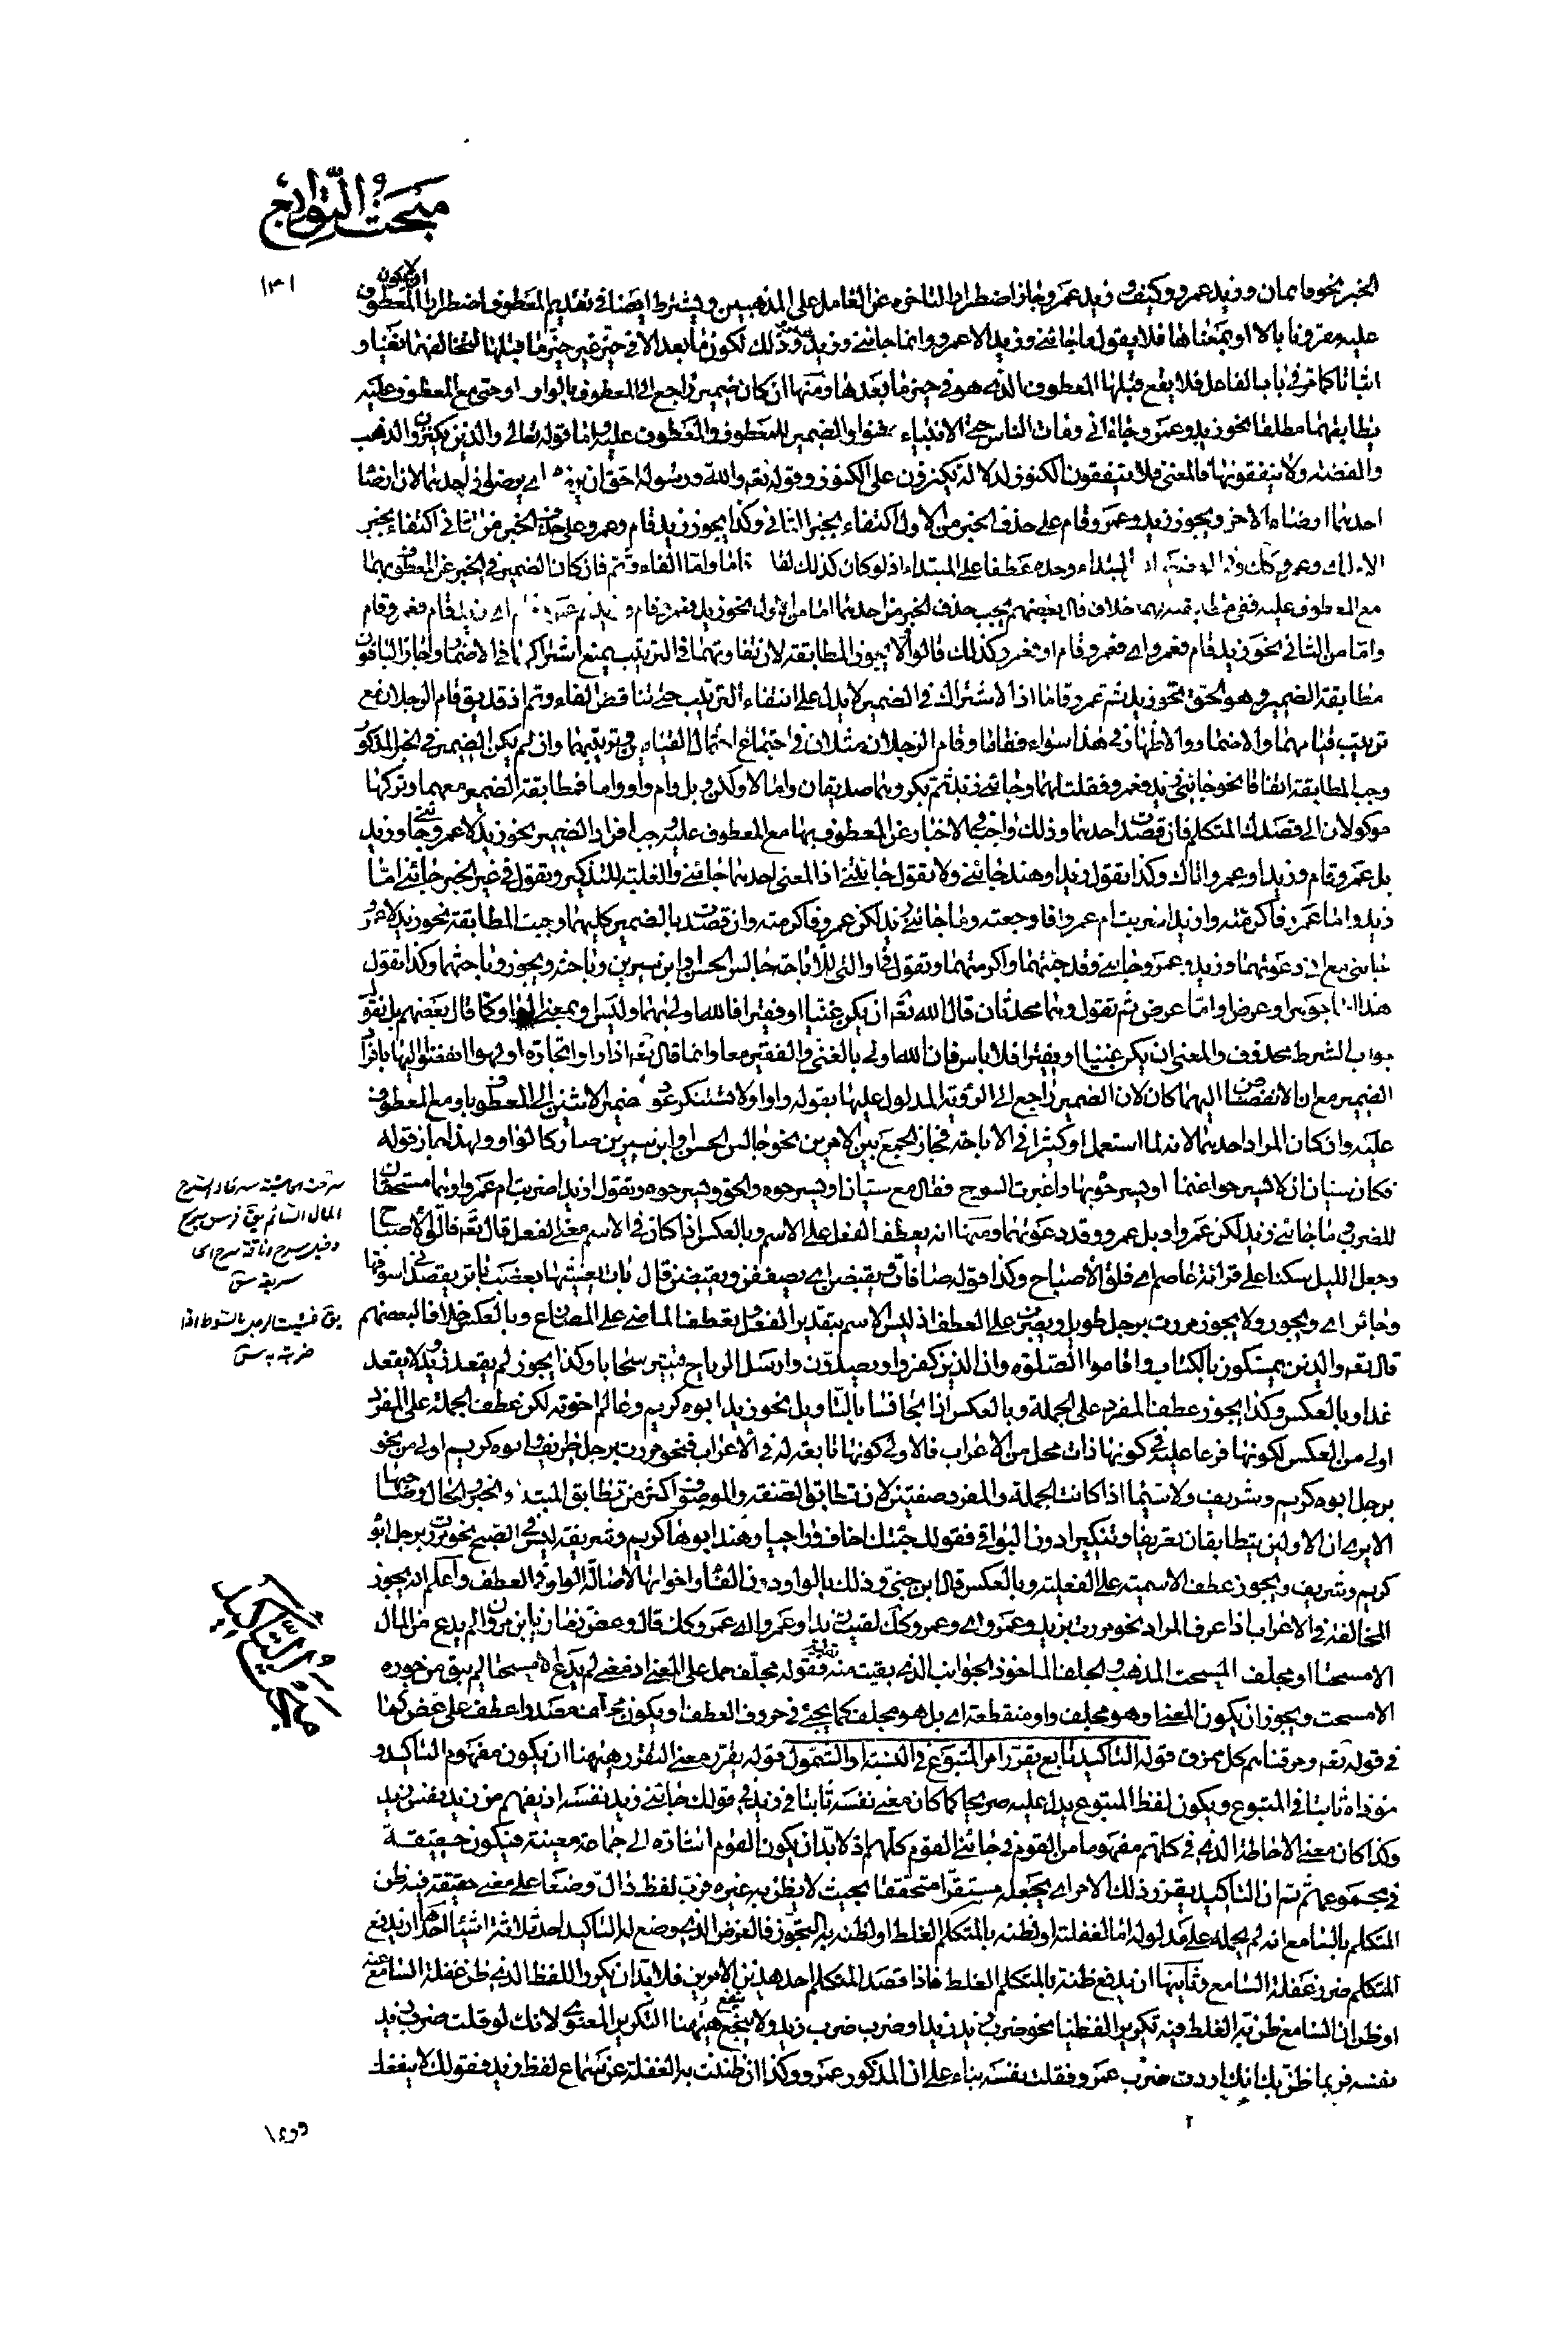 مبحث التوابع
١٣١
الخبر نحو قايمان وزيد عمرو وكيف وزيد عمرو وجاز اضطرارا لتاخره عن العامل على المذهبين ويشترط ايضا في تقديم المعطوف اضطرارا ان لا يكون المعطوف
عليه مقرونا بالا او بمعناها فلا يقول ما جائني وزيد الا عمرو وانما جائني وزيد عمرو وذلك لكون ما بعد الا في حيز غير حيز ما قبلها لتخالفهما نفيا و
اثباتا كما مر في باب الفاعل فلا يقع قبلها المعطوف الذي هو في حيز ما بعدها ومنها ان كان ضمير راجع الى المعطوف بالواو او حتى مع المعطوف عليه
يطابقهما مطلقا نحو زيد وعمرو جاءاني ومات الناس حتى الانبياء وفنوا والضمير للمعطوف والمعطوف عليه واما قوله تعالى والذين يكنزون الذهب
والفضة ولا ينفقونها فالمعنى ولا ينفقون الكنوز لدلالة يكنزون على الكنوز وقوله تعه والله ورسوله احق ان يرضوه اي يرضوا احدهما لان ارضاء
احدهما ارضاء الاخر ويجوز زيد وعمرو قام على حذف الخبر من الاول اكتفاء بخبر الثاني وكذا يجوز زيد قام وعمرو على حذف الخبر من الثاني اكتفاء بخبر
الاول اي وعمرو كذلك المبتداء وحده عطفا على المبتداء اذ لو كان كذلك لقا قاما واما الفاء وثم فان كان الضمير في الخبر عن المعطوف بهما
مع المعطوف عليه ففي مطابقته لهما خلاف قال بعضهم يجب حذف الخبر من احدهما اما من الاول نحو زيد فعمرو قام اي زيد قام فعمرو قام
واما من الثاني نحو زيد قام فعمرو اي فعمرو قام او فعمرو كذلك قالوا لا يجوز المطابقة لان تفاوتهما في الترتيب يمنع اشتراكهما في الاضمار واجاز الباقون
مطابقة الضمير وهو الحق نحو زيد ثم عمرو قاما اذ الاشتراك في الضمير لا يدل على انتفاء الترتيب حتى تناقض الفاء وثم اذ قد يق قام الرجلان مع
ترتيب قيامهما والاضمار والاظهار في هذا سواء فقاما وقام الرجلان مثلان في اجتماع احتمال القيام وترتيبهما وان لم يكن الضمير في الخبر المذكور
وجب المطابقة اتفاقا نحو جائني زيد فعمرو فقلت لهما وجائني زيد ثم بكر وهما صديقان واما لا ولكن وبل وام واو واما فمطابقة الضمير معهما وتركها
موكولان الى قصدك المتكلم فان قصدت احدهما وذلك واجب في الاخبار عن المعطوف بها مع المعطوف عليه وجب افراد الضمير نحو زيد لا عمرو جائني وزيد
بل عمرو قام وزيد او عمرو اتاك وكذا تقول زيد او هند جائني ولا تقول جائتني اذ المعنى احدهما جائني والغلبة للتذكير وتقول في غير الخبر جائني اما
زيد واما عمرو فاكرمته وازيدا ضربت ام عمرا فاوجعته وما جائني زيد لكن عمرو فاكرمته وان قصدت بالضمير كليهما وجبت المطابقة نحو زيد لا عمرو
جائني مع اني دعوتهما وزيد وعمرو جائني وقد جئتهما واكرمتهما وتقول في او التي للاباحة جالس الحسن او ابن سيرين وباحثه ويجوز وباحثهما وكذا تقول
هذا اما جوهر او عرض واما عرض ثم تقول وهما محدثان قال الله تعه ان يكن غنيا او فقيرا فالله اولى بهما وليس او بمعنى الواو كما قال بعضهم بل نقول
جواب الشرط محذوف والمعنى ان يكن غنيا او فقيرا فلا باس فان الله اولى بالغني والفقير معا وانما قال تعه اذا راوا تجارة او لهوا انفضوا اليها بافراد
الضمير مع ان الانفضاض اليهما كان لان الضمير راجع الى الرؤية المدلول عليها بقوله راوا ولا تستنكر عود ضمير الاثنين الى المعطوف باو مع المعطوف
عليه وان كان المراد احدهما لانه لما استعمل او كثيرا في الاباحة فجاز الجمع بين الامرين نحو جالس الحسن او ابن سيرين صار كالواو ولهذا جاز قوله
فكان سيان ان لا يسرحوا غنما او يسرحوه بها واغبرت السوح فقال مع سيان او يسرحوه والحق ويسرحوه وتقول ازيدا ضربت ام عمرا وهما مستحقان
للضرب وما جائني زيد لكن عمرو او بل عمرو وقد دعوتهما ومنها انه يعطف الفعل على الاسم وبالعكس اذا كان في الاسم معنى الفعل قال تعه فالق الاصباح
وجعل الليل سكنا على قرائة عاصم اي فلق الاصباح وكذا قوله صافات ويقبضن اي يصففن ويقبضن قال بات يعشيها بعضب باتر يقصد في اسوقها
وجائر اي ويجور ولا يجوز مررت برجل طويل ويضرب على العطف اذ ليس الاسم بتقدير الفعل يعطف الماضي على المضارع وبالعكس خلافا لبعضهم
قال تعه والذين يمسكون بالكتاب واقاموا الصلوة وان الذين كفروا ويصدون وارسل الرياح فتثير سحابا وكذا يجوز لم يقعد زيد ولا يقعد
غدا وبالعكس وكذا يجوز عطف المفرد على الجملة وبالعكس اذا تجانسا بالتاويل نحو زيد ابوه كريم وعالم اخوته لكن عطف الجملة على المفرد
اولى من العكس لكونها فرعا عليه في كونها ذات محل من الاعراب فالاولى كونها تابعة له في الاعراب فنحو مررت برجل ظريف وابوه كريم اولى من نحو
برجل ابوه كريم وشريف ولا سيما اذا كانت الجملة والمفرد صفتين لان تطابق الصفة والموصوف اكثر من تطابق المبتدا والخبر والحال وصاحبها
الا يرى ان الاولين يتطابقان تعريفا وتنكيرا دون البواقي فقولك جئتك خائفا وراجيا وهند ابوها كريم وشريفة ليس في القبح نحو مررت برجل ابو
كريم وشريف ويجوز عطف الاسمية على الفعلية وبالعكس قال ابن جني وذلك بالواو دون الفاء واخواتها لاصالة الواو في العطف واعلم انه يجوز
المخالفة في الاعراب اذا عرف المراد نحو مررت بزيد وعمرو اي وعمرو كك لقيت زيدا وعمرو اي عمرو كك قال وعض زمان يا ابن مروان لم يدع من المال
الا مسحتا او مجلف المسحت المذهب والمجلف الماخوذ الجوانب الذي بقيت منه بقية فقوله مجلف حمل على المعنى اذ معنى لم يدع الا مسحتا لم يبق من جوره
الا مسحت ويجوز ان يكون المعنى او هو مجلف واو منقطعة اي بل هو مجلف كما يجئ في حروف العطف او يكون مجلف مصدرا عطف على عض كما
في قوله تعه ومزقناهم كل ممزق قوله التاكيد تابع يقرر امر المتبوع في النسبة او الشمول قوله يقرر معنى التقرر ههنا ان يكون مفهوم التاكيد و
مؤداه ثابتا في المتبوع ويكون لفظ المتبوع يدل عليه صريحا كما كان معنى نفسه ثابتا في زيد في قولك جائني زيد نفسه اذ يفهم من زيد نفس زيد
وكذا كان معنى الاحاطة الذي في كلهم مفهوما من القوم في جائني القوم كلهم اذ لا بد ان يكون القوم اشارة الى جماعة معينة فيكون حقيقة
في مجموعهم ثم ان التاكيد يقرر ذلك الامر اي يجعله مستقرا متحققا بحيث لا يظن به غيره فرب لفظ دال وضعا على معنى حقيقة فيه ظن
المتكلم بالسامع انه لم يحمله على مدلوله اما لغفلته او لظنه بالمتكلم الغلط او لظنه به التجوز فالغرض الذي وضع له التاكيد احد ثلاثة اشياء احدها ان يدفع
المتكلم ضرر غفلة السامع وثانيها ان يدفع ظنه بالمتكلم الغلط فاذا قصد المتكلم احد هذين الامرين فلا بد ان يكرر اللفظ الذي ظن غفلة السامع عنه
او ظن ان السامع ظن به الغلط فيه تكريرا لفظيا نحو ضرب زيد زيد او ضرب ضرب زيد ولا ينجع ههنا التكرير المعنوي لانك لو قلت ضرب زيد
نفسه فربما ظن بك انك اردت ضرب عمرو فقلت نفسه بناء على ان المذكور عمرو وكذا ان ظننت به الغفلة عن سماع لفظ زيد فقولك لا ينفعك
مبحث التاكيد